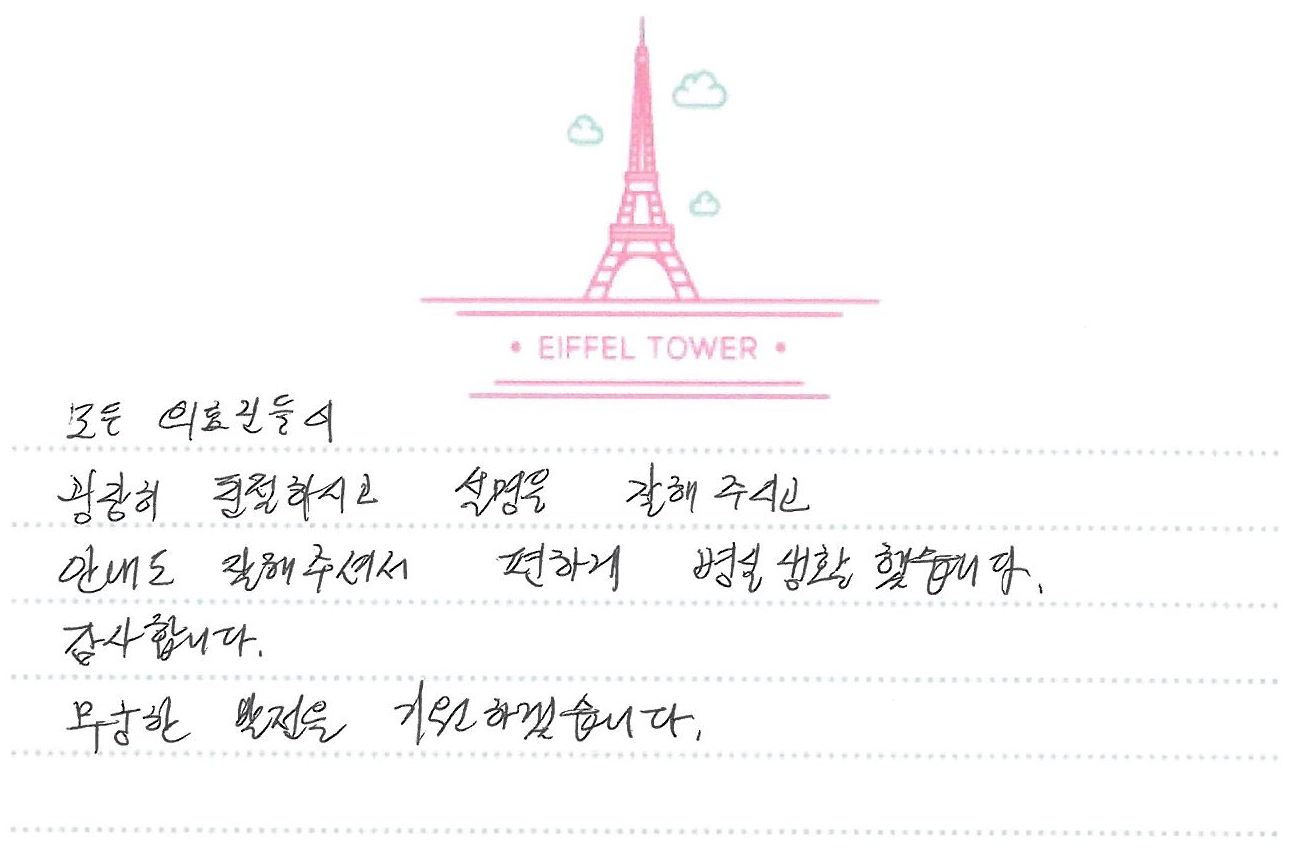 EIFFEL TOWER
모든 의료진들이
굉장히 친절하시고 설명을 잘해 주시고
안내도 잘해주셔서 편하게 병실 생활 했습니다.
감사합니다.
무궁한 발전을 기원하겠습니다.